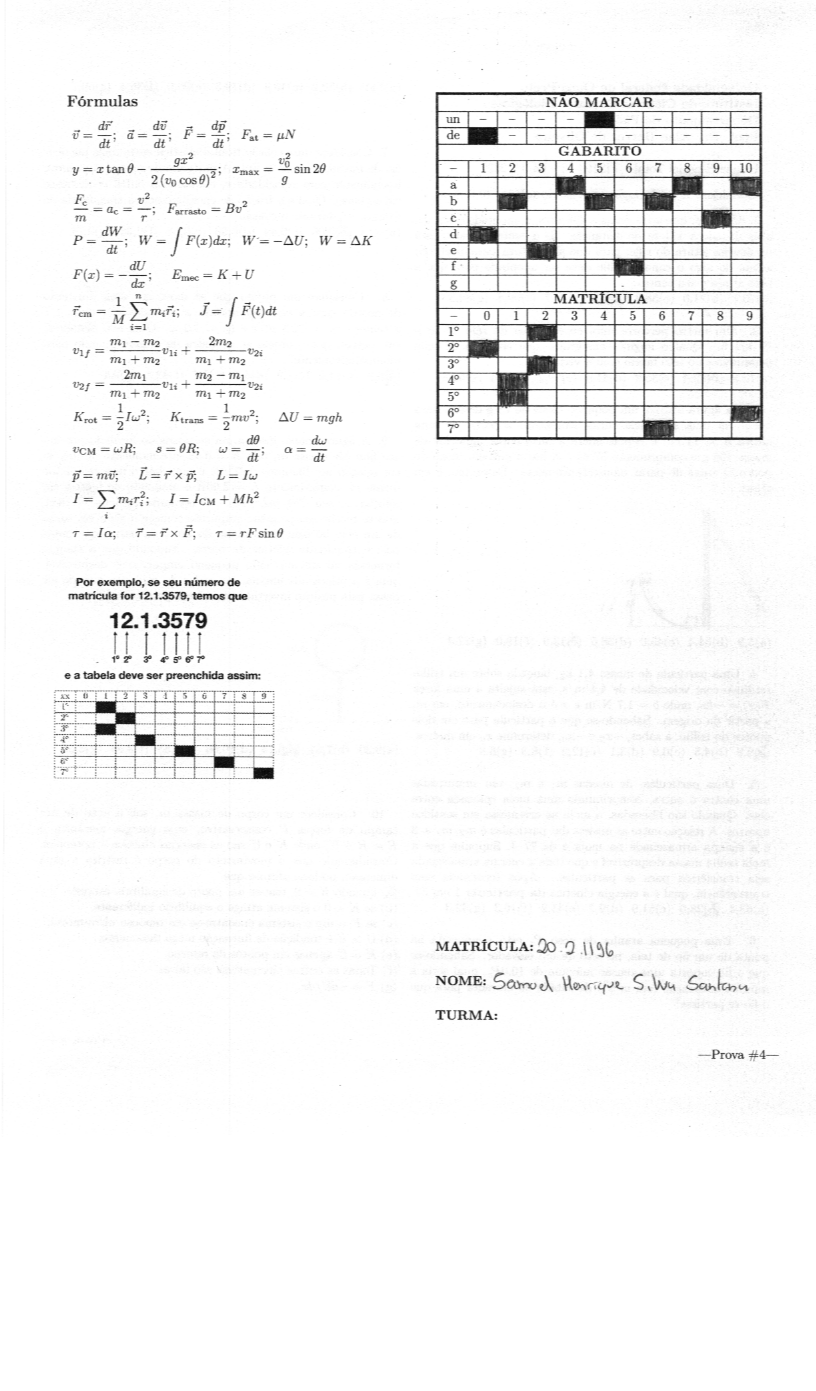 Fórmulas
$\vec{v} = \dfrac{d\vec{r}}{dt}$; $\vec{a} = \dfrac{d\vec{v}}{dt}$; $\vec{F} = \dfrac{d\vec{p}}{dt}$; $F_{\text{at}} = \mu N$
$y = x\tan\theta - \dfrac{gx^2}{2(v_0\cos\theta)^2}$; $x_{\max} = \dfrac{v_0^2}{g}\sin 2\theta$
$\dfrac{F_c}{m} = a_c = \dfrac{v^2}{r}$; $F_{\text{arrasto}} = Bv^2$
$P = \dfrac{dW}{dt}$; $W = \int F(x)dx$; $W = -\Delta U$; $W = \Delta K$
$F(x) = -\dfrac{dU}{dx}$; $E_{\text{mec}} = K + U$
$\vec{r}_{\text{cm}} = \dfrac{1}{M}\sum_{i=1}^{n} m_i\vec{r}_i$; $\vec{J} = \int \vec{F}(t)dt$
$v_{1f} = \dfrac{m_1 - m_2}{m_1 + m_2}v_{1i} + \dfrac{2m_2}{m_1 + m_2}v_{2i}$
$v_{2f} = \dfrac{2m_1}{m_1 + m_2}v_{1i} + \dfrac{m_2 - m_1}{m_1 + m_2}v_{2i}$
$K_{\text{rot}} = \dfrac{1}{2}I\omega^2$; $K_{\text{trans}} = \dfrac{1}{2}mv^2$; $\Delta U = mgh$
$v_{\text{CM}} = \omega R$; $s = \theta R$; $\omega = \dfrac{d\theta}{dt}$; $\alpha = \dfrac{d\omega}{dt}$
$\vec{p} = m\vec{v}$; $\vec{L} = \vec{r} \times \vec{p}$; $L = I\omega$
$I = \sum_i m_i r_i^2$; $I = I_{\text{CM}} + Mh^2$
$\tau = I\alpha$; $\vec{\tau} = \vec{r} \times \vec{F}$; $\tau = rF\sin\theta$
Por exemplo, se seu número de
matrícula for 12.1.3579, temos que
12.1.3579
1º 2º 3º 4º 5º 6º 7º
e a tabela deve ser preenchida assim:
xx 0 1 2 3 4 5 6 7 8 9
1º
2º
3º
4º
5º
6º
7º
NÃO MARCAR
un – – – – – – – – –
de – – – – – – – – –
GABARITO
– 1 2 3 4 5 6 7 8 9 10
a
b
c
d
e
f
g
MATRÍCULA
– 0 1 2 3 4 5 6 7 8 9
1º
2º
3º
4º
5º
6º
7º
MATRÍCULA: 20.2.1196
NOME: Samuel Henrique Silva Santana
TURMA:
—Prova #4—